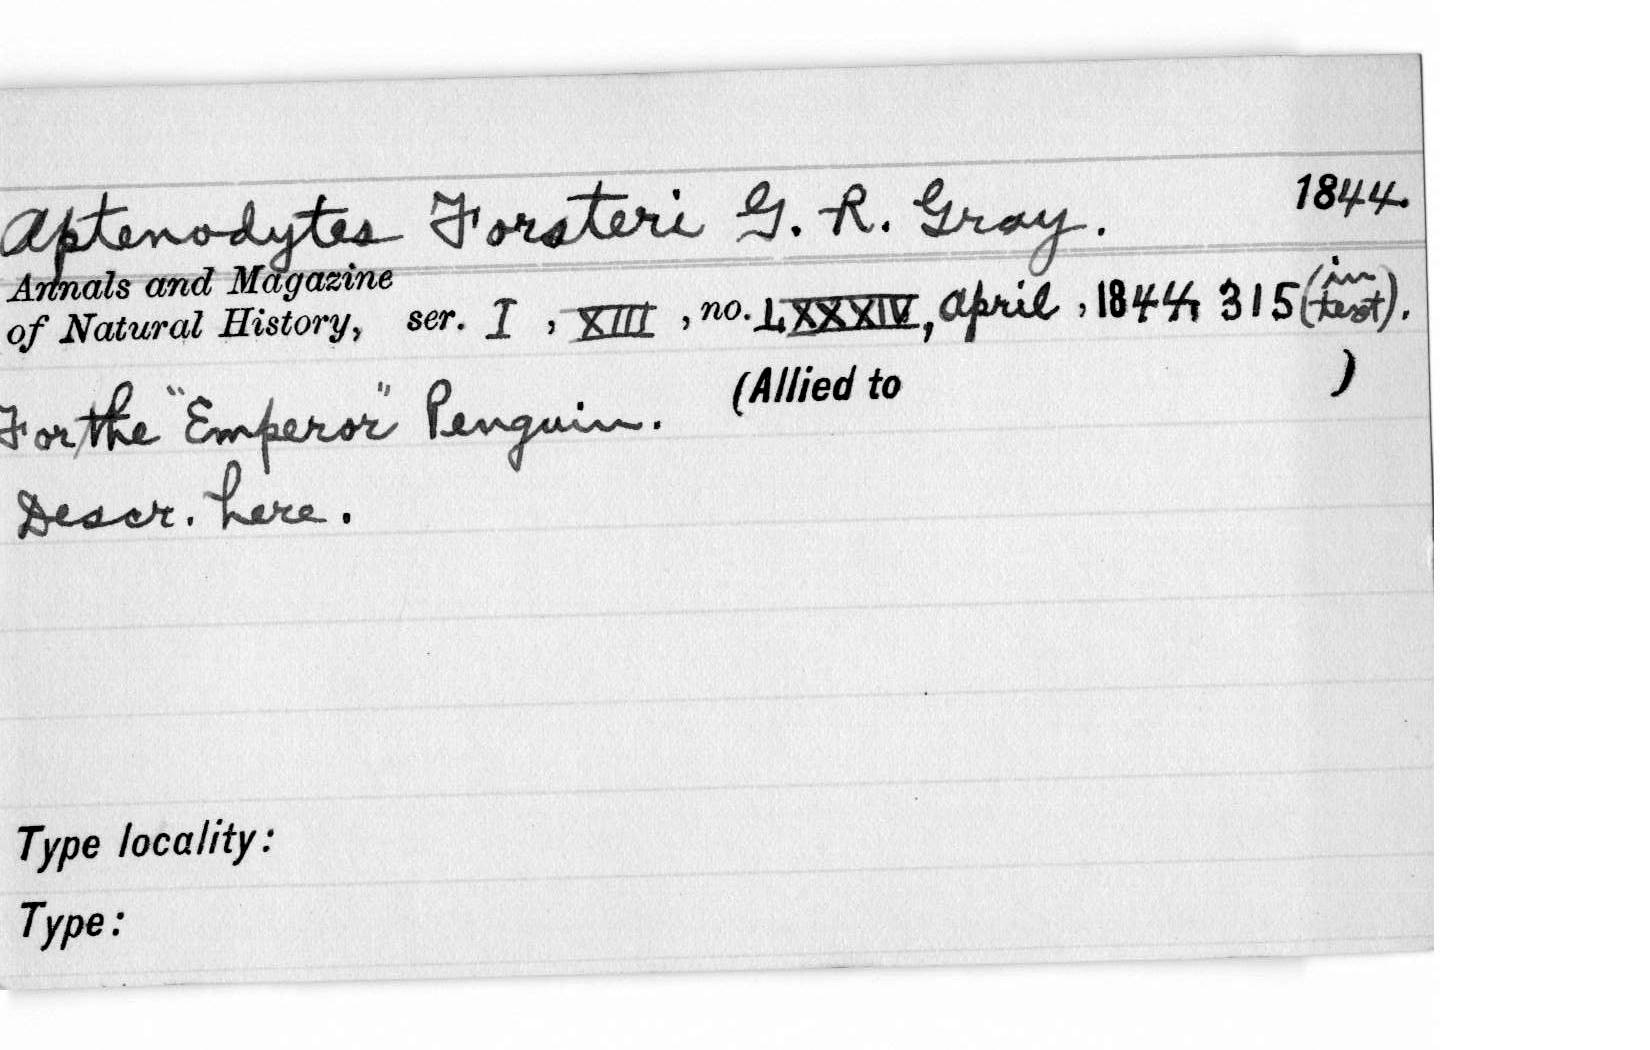 Aptenodytes Forsteri G. R. Gray. 1844.
Annals and Magazine
of Natural History, ser. I, XIII, no. LXXXIV, April, 1844, 315 (in text).
(Allied to )
For the "Emperor" Penguin.
Descr. here.
Type locality:
Type: